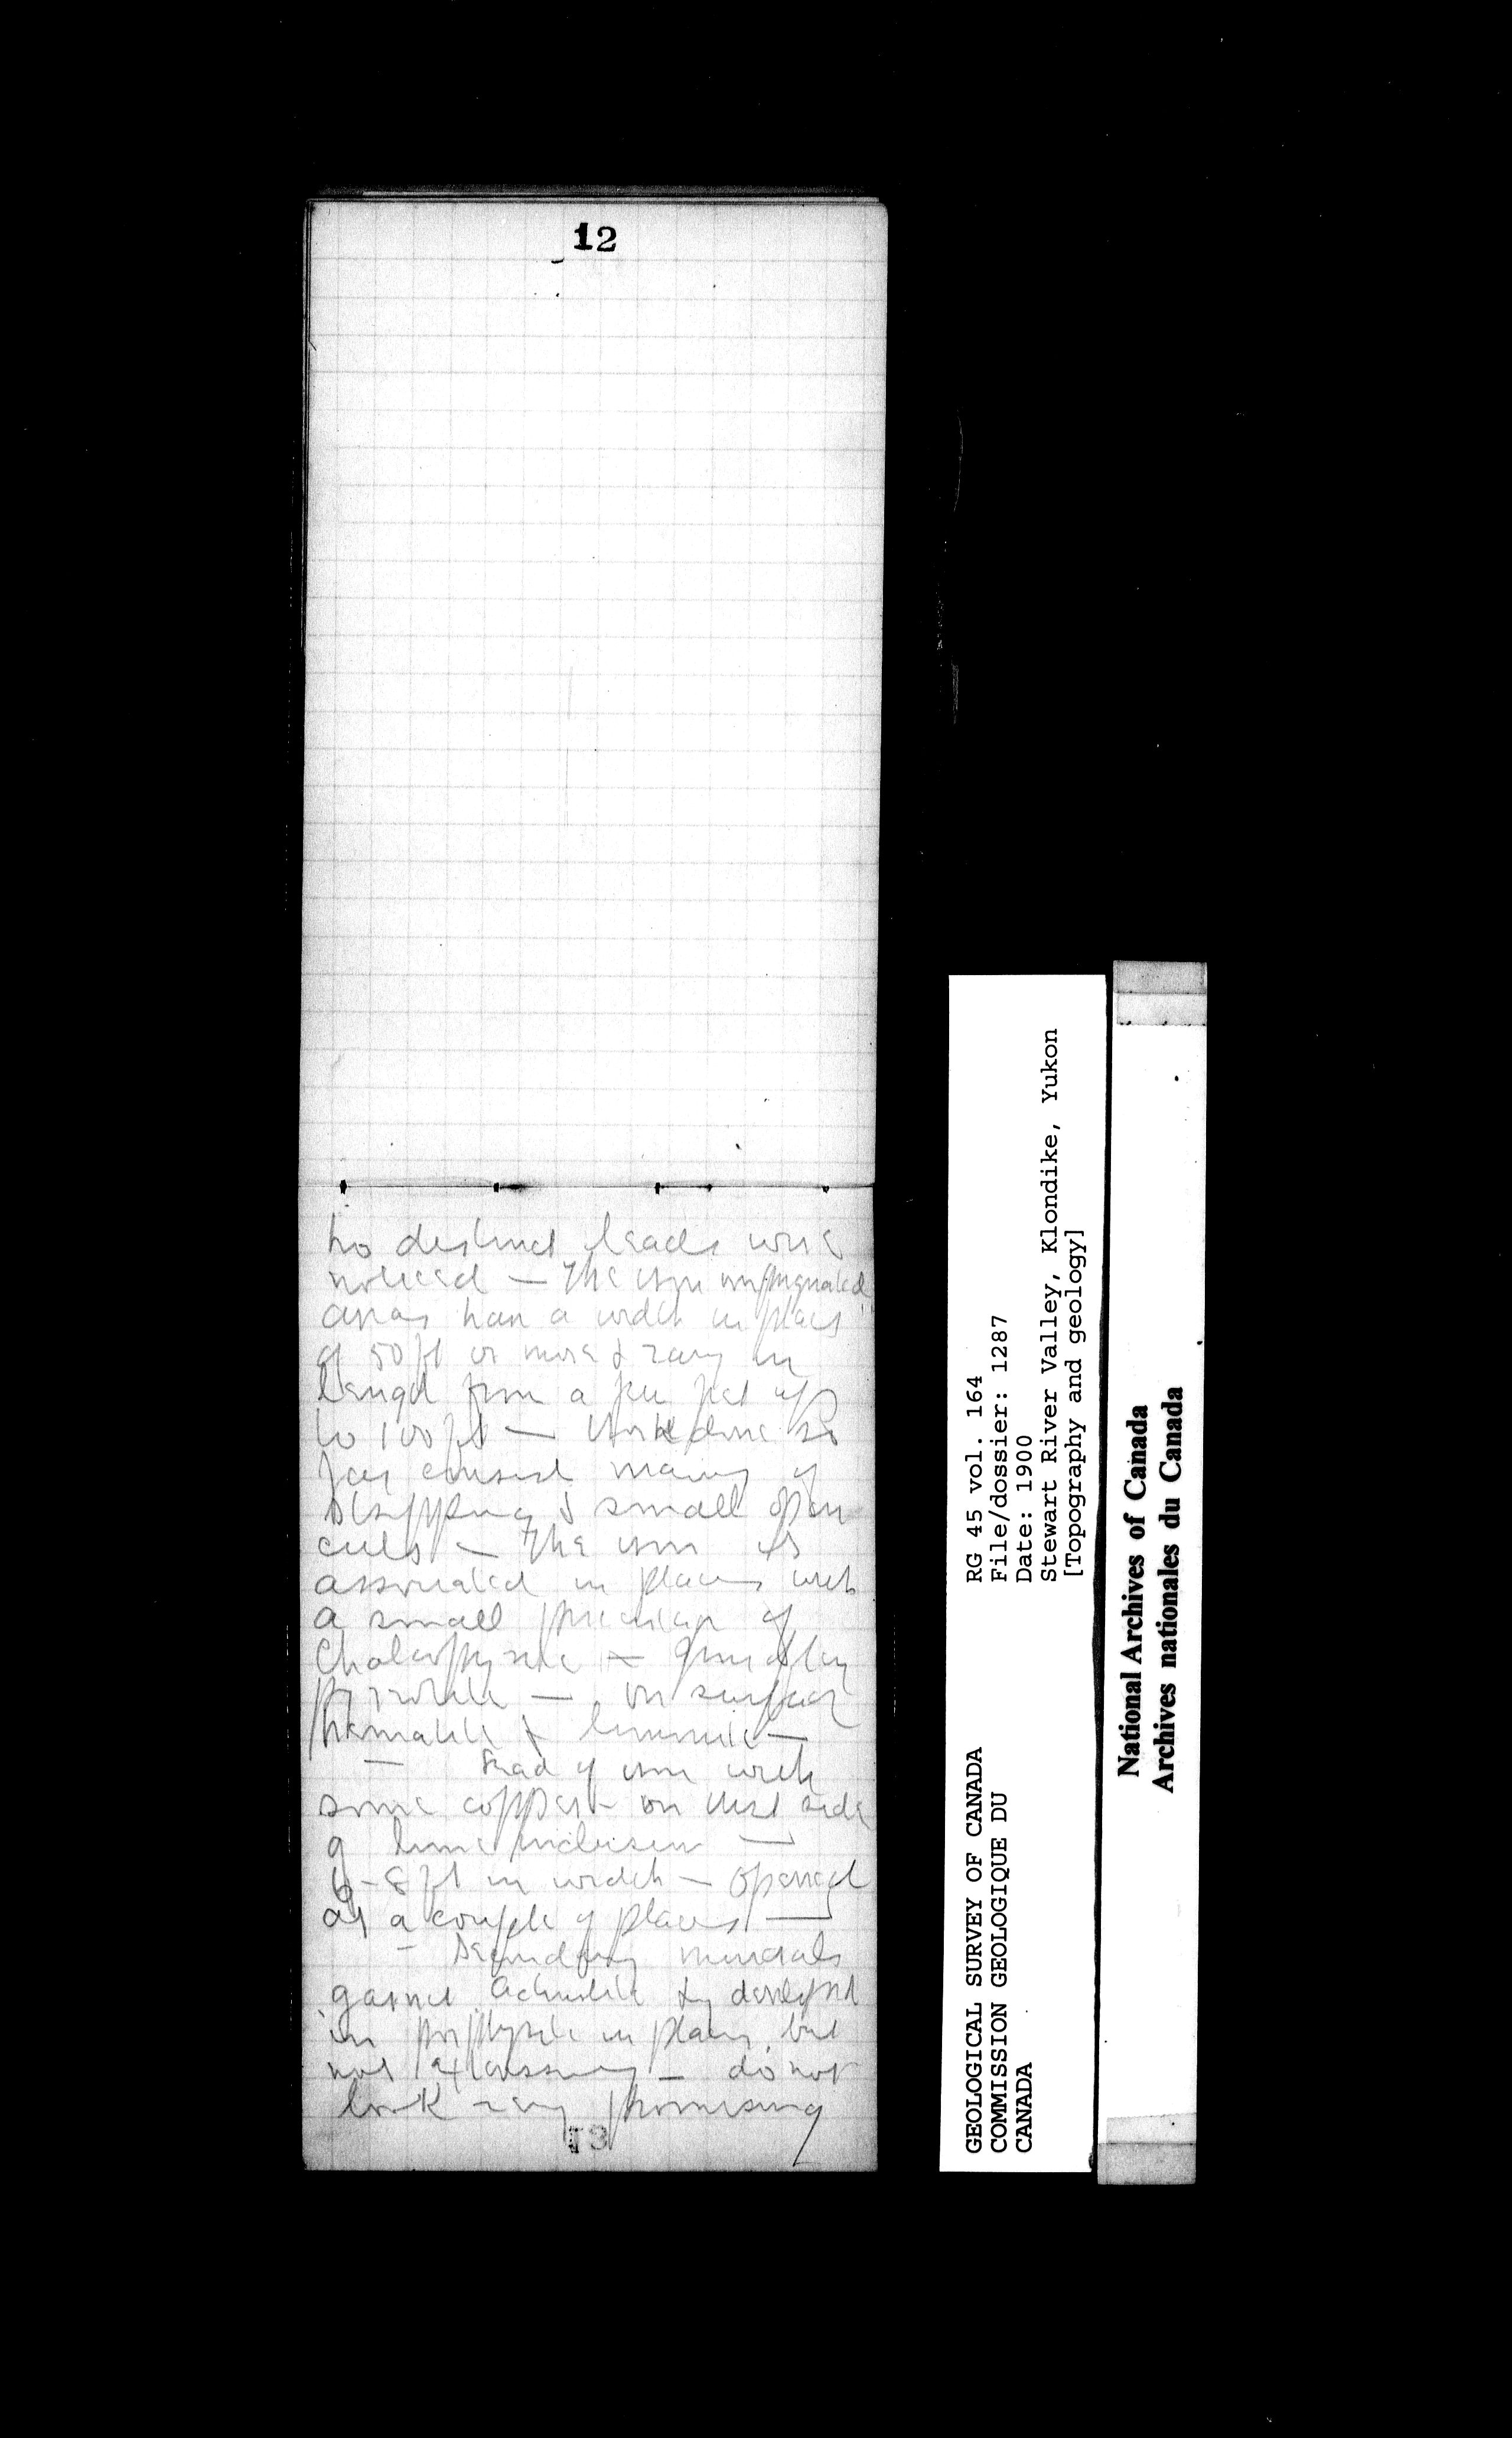 12
no distinct leads were
noticed — The iron impregnated
areas have a width in places
of 50 ft or more & vary in
length from a few feet up
to 100 ft — Work done so
far consist mainly of
stripping & small open
cuts — The iron is
associated in places with
a small percentage of
Chalcopyrite — generally
pyrrhotite — on surface
hematite & limonite —
— Lead of iron with
some copper — on west side
of lime inclusion —
6-8 ft in width — opened
at a couple of places —
— Secondary minerals
garnet actinolite developed
in porphyrite in places but
not extensively — do not
look very promising
13
GEOLOGICAL SURVEY OF CANADA
COMMISSION GEOLOGIQUE DU
CANADA
RG 45 vol. 164
File/dossier: 1287
Date: 1900
Stewart River Valley, Klondike, Yukon
[Topography and geology]
National Archives of Canada
Archives nationales du Canada